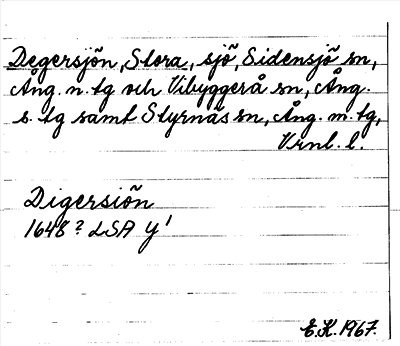 Degersjön, Stora, sjö, Sidensjö sn,
Ång. n. tg och Vibyggerå sn, Ång.
s. tg samt Styrnäs sn, Ång. m. tg,
Vrnl. l.
Digersiön
1648? LSA Y1
E.K. 1967.